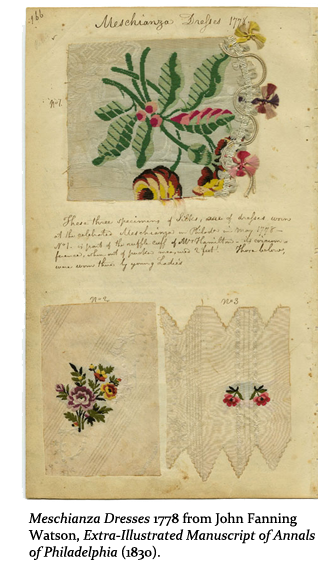 166
Meschianza Dresses 1778
No 1
These three specimens of Silks, are of dresses worn
at the celebrated Meschianza in Philada in May 1778 –
No 1. is part of the cuff of Mrs
when out of was 2 feet! Those below,
were worn then by young Ladies
No 2
No 3
Meschianza Dresses 1778 from John Fanning
Watson, Extra-Illustrated Manuscript of Annals
of Philadelphia (1830).